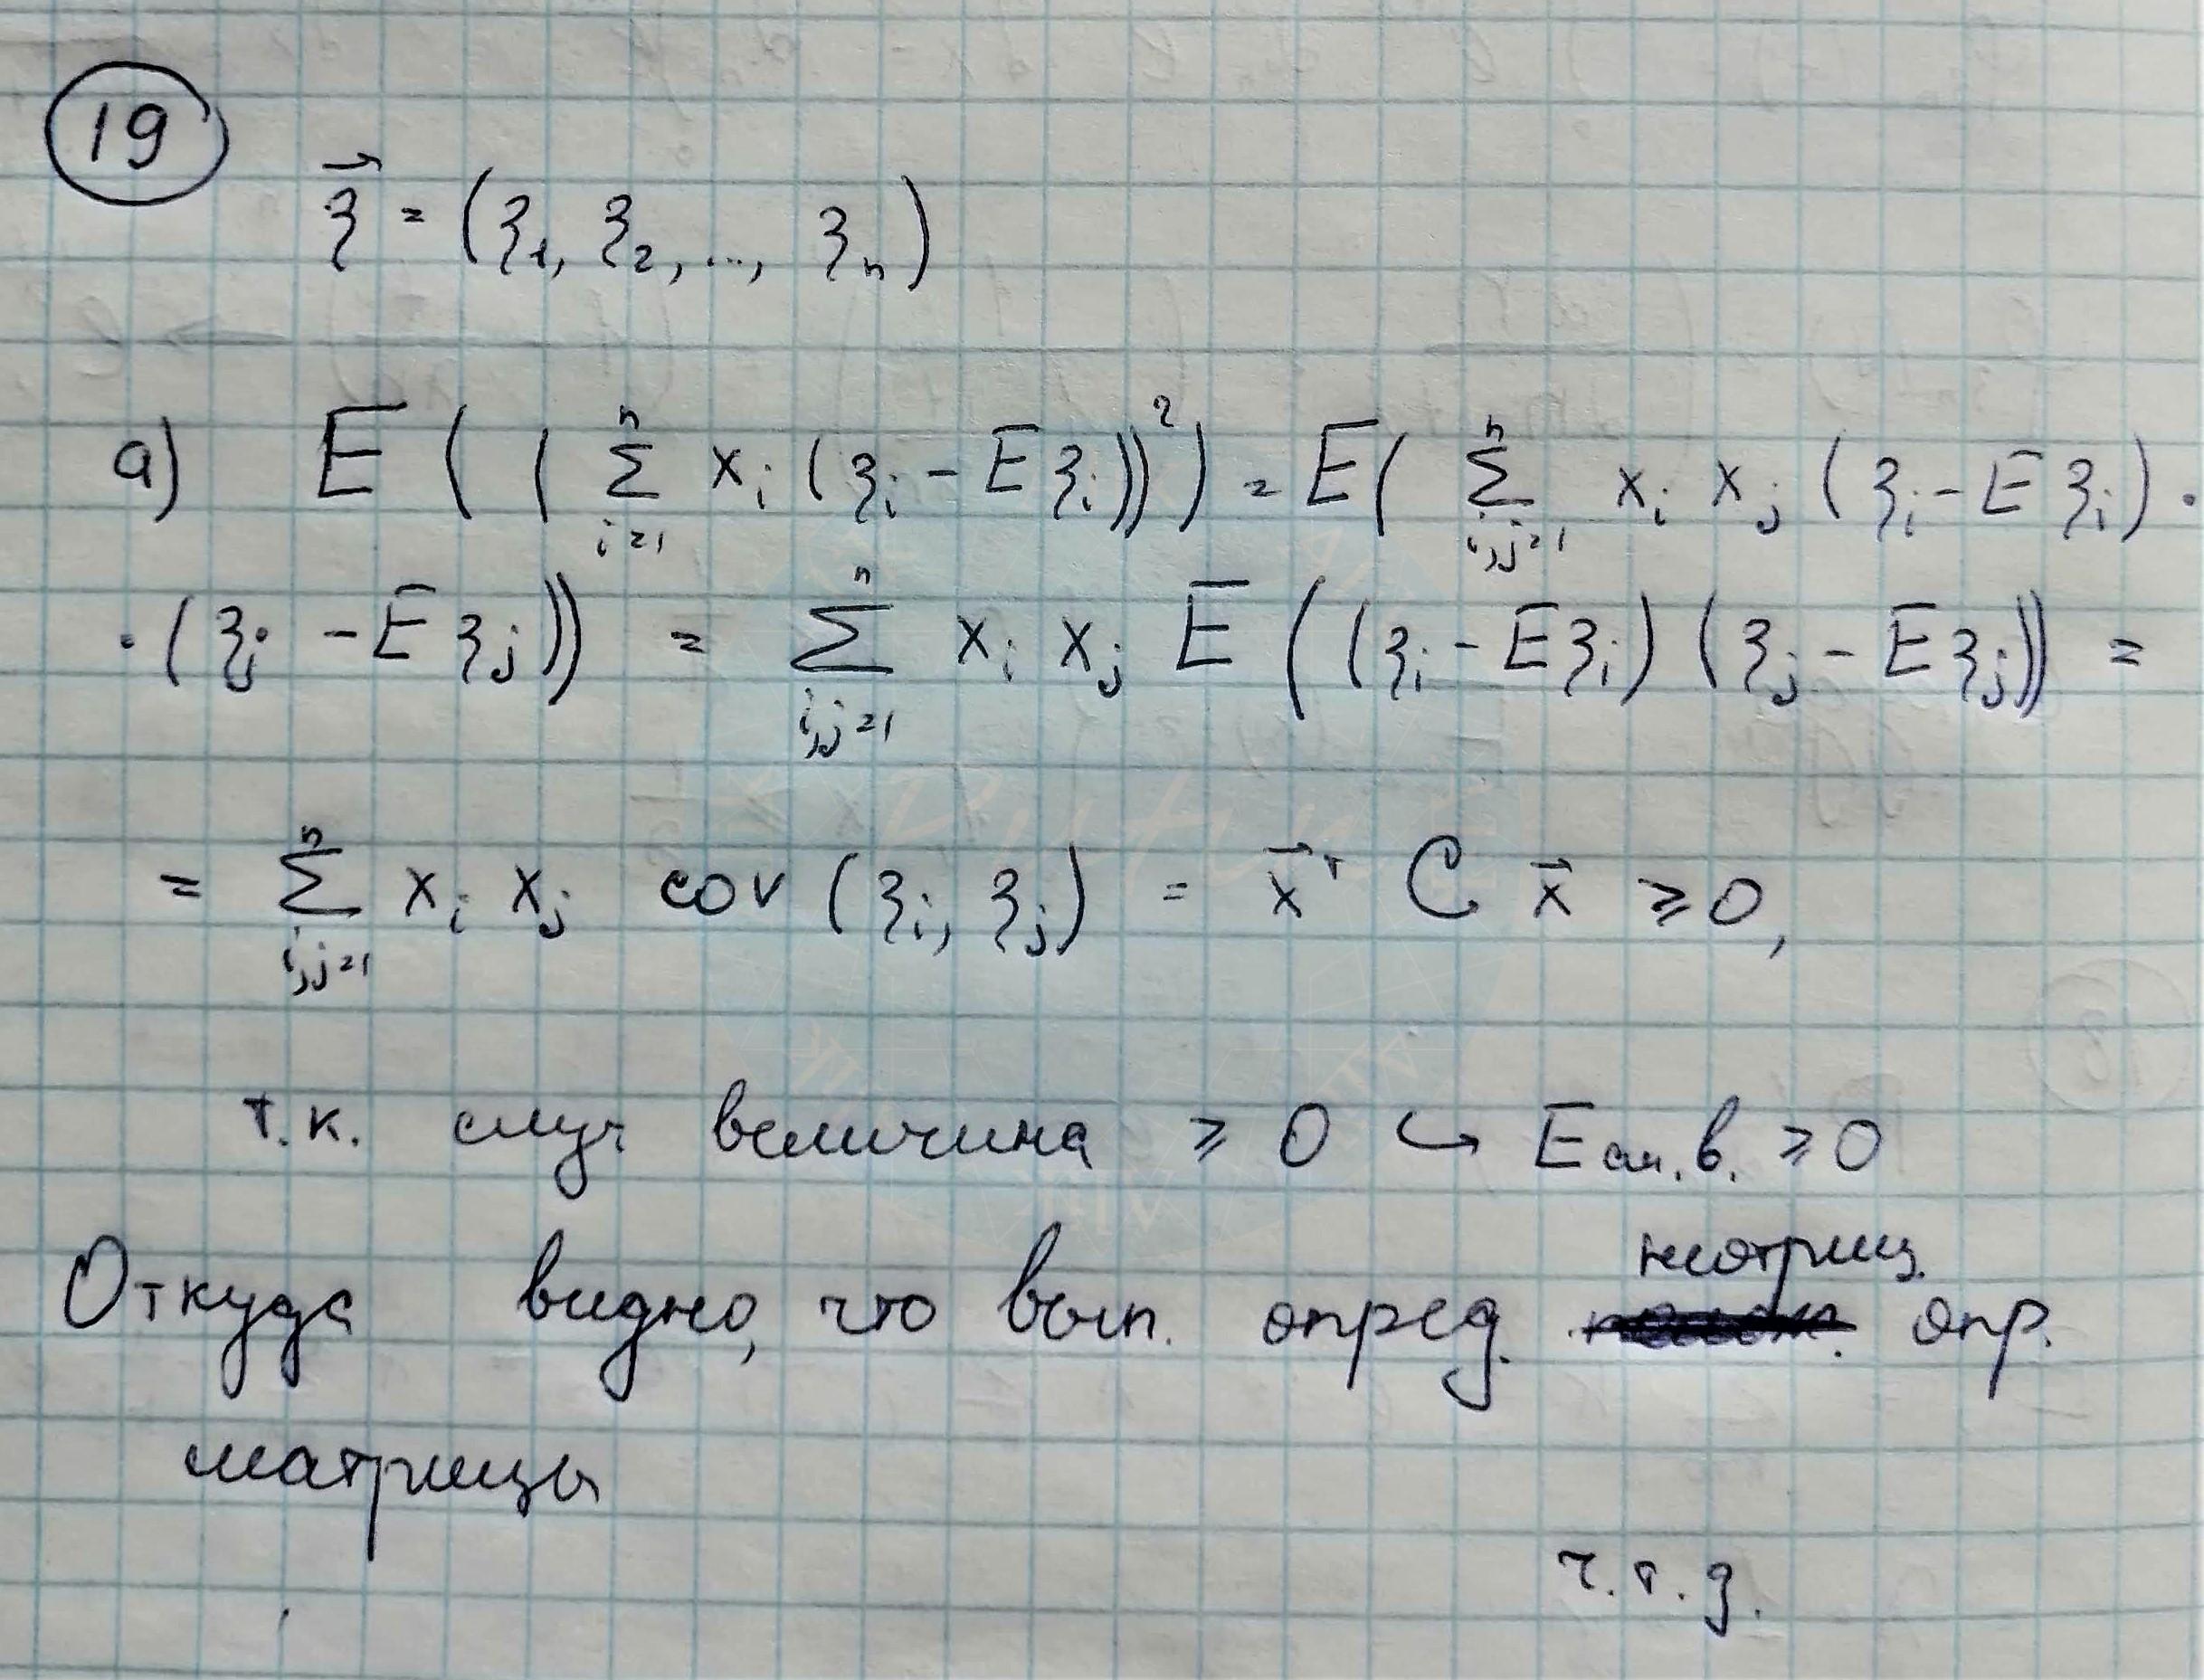 19
ξ⃗ = (ξ₁, ξ₂, ..., ξₙ)
а) E ( ( ∑_{i=1}^{n} xᵢ (ξᵢ - Eξᵢ))² ) = E( ∑_{i,j=1}^{n} xᵢ xⱼ (ξᵢ - Eξᵢ) ·
· (ξⱼ - Eξⱼ)) = ∑_{i,j=1}^{n} xᵢ xⱼ E ( (ξᵢ - Eξᵢ) (ξⱼ - Eξⱼ)) =
= ∑_{i,j=1}^{n} xᵢ xⱼ cov (ξᵢ, ξⱼ) = x⃗ᵀ C x⃗ ≥ 0,
т.к. случ величина ≥ 0 ↪ E сл. в. ≥ 0
Откуда видно, что вып. опред. неотриц. опр.
матрицы
ч.т.д.